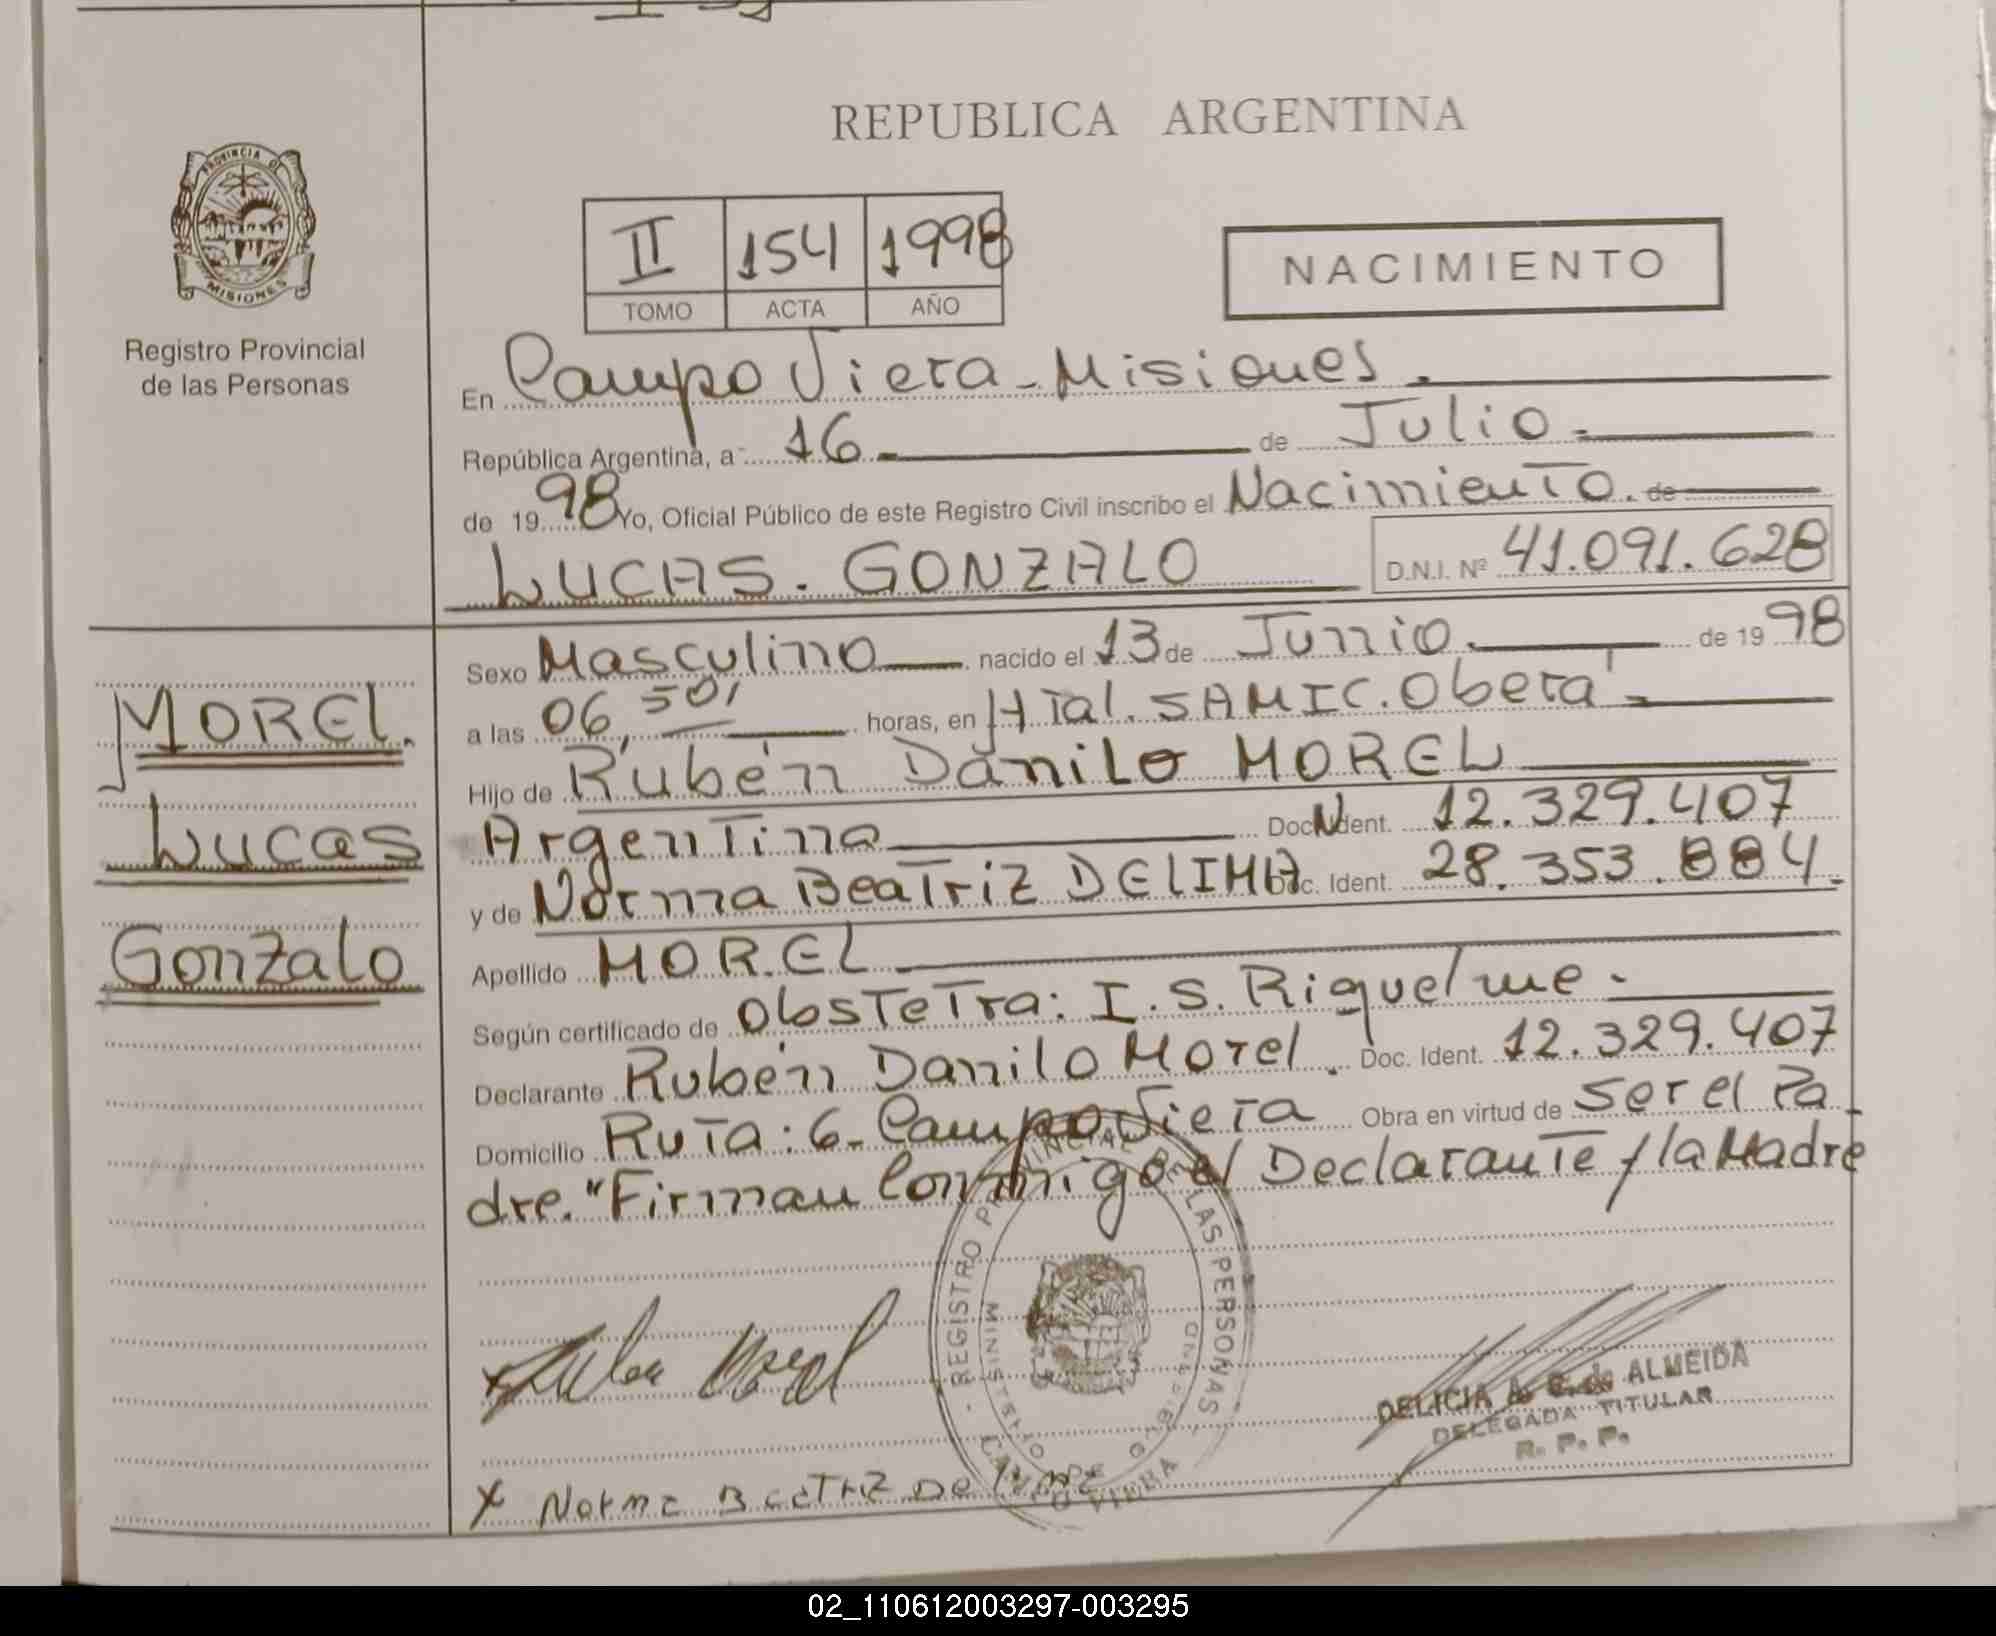 REPUBLICA ARGENTINA
PROVINCIA DE
MISIONES
Registro Provincial
de las Personas
II 154 1998
TOMO ACTA AÑO
NACIMIENTO
En Campo Viera - Misiones.
República Argentina, a 16 de Julio
de 1998 Yo, Oficial Público de este Registro Civil inscribo el Nacimiento. de
LUCAS. GONZALO D.N.I. Nº 41.091.628
MOREL.
Lucas
Gonzalo
Sexo Masculino nacido el 13 de Junio. de 1998
a las 06,50, horas, en Htal. SAMIC. Oberá
Hijo de Rubén Danilo MOREL
Argentina Doc. Ident. 12.329.407
y de Norma Beatriz DELIMA Doc. Ident. 28.353.884.
Apellido MOREL
Según certificado de Obstetra: I. S. Riquelme.
Declarante Rubén Danilo Morel. Doc. Ident. 12.329.407
Domicilio Ruta: 6- Campo Viera Obra en virtud de ser el Pa-
dre. "Firman Conmigo el Declarante y la Madre
REGISTRO PROVINCIAL DE LAS PERSONAS
MINISTERIO DE GOBIERNO
CAMPO VIERA
x Ruben Morel
DELICIA A. C. de ALMEIDA
DELEGADA TITULAR
R. P. P.
x Norma Beatriz De Lima
02_110612003297-003295